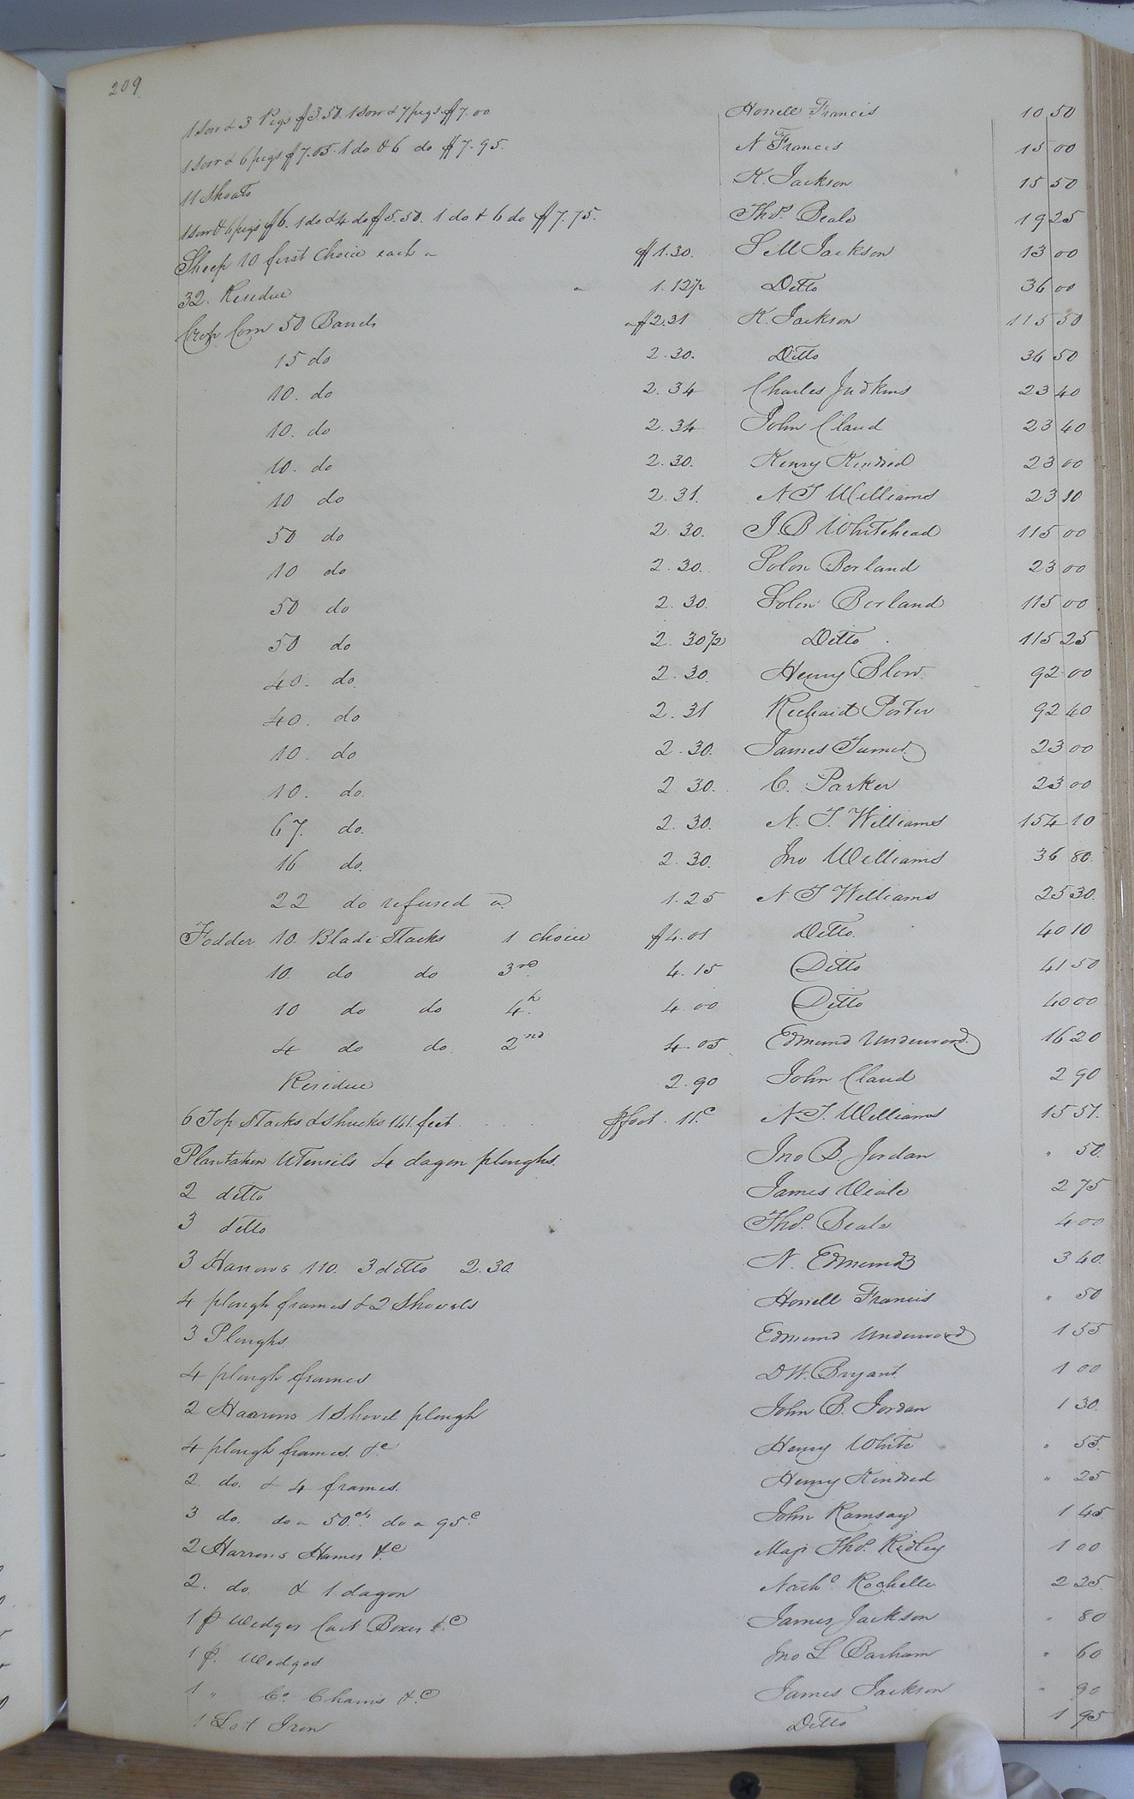 209
1 Sow & 3 Pigs $3.50. 1 Sow & 7 pigs $7.00 Howell Francis 10 50
1 Sow & 6 pigs $7.05. 1 do & 6 do $7.95. N Francis 15 00
11 Shoats K. Jackson 15 50
1 Sow & 6 pigs $6. 1 do & 4 do $5.50. 1 do & 6 do $7.75. Thos. Beale 19 25
Sheep 10 first Choice each a $1.30. S M Jackson 13 00
32. Residue " 1.12½ Ditto 36 00
Crop Corn 50 Bands a $2.31 K. Jackson 115 50
15 do 2.30. Ditto 36 50
10. do 2.34 Charles Judkins 23 40
10. do 2.34 John Claud 23 40
10. do 2.30. Henry Kindred 23 00
10 do 2.31. N T Williams 23 10
50 do 2.30. J. B Whitehead 115 00
10 do 2.30. Solon Borland 23 00
50 do 2.30. Solon Borland 115 00
50 do 2.30½ Ditto 115 25
40. do. 2.30. Henry Blow. 92 00
40. do 2.31 Richard Porter 92 40
10. do 2.30. James Turner 23 00
10. do. 2 30. C. Parker 23 00
67. do. 2.30. N. T. Williams 154 10
16 do. 2.30. Jno Williams 36 80.
22 do refused a 1.25 N T Williams 25 30.
Fodder 10. Blade Stacks 1 choice $4.01 Ditto. 40 10
10. do do 3rd 4.15 Ditto 41 50
10 do do 4th 4.00 Ditto 40 00
4 do do. 2nd 4.05 Edmund Underwood 16 20
Residue 2.90 John Claud 2 90
6 Top Stacks & Shucks 141 feet pr foot. 11.c N. T. Williams 15 51.
Plantation Utensils 4 dagon ploughs. Jno B. Jordan " 50
2 ditto James Weale 2 75
3 ditto Thos. Beale 4 00
3 Harrows 110. 3 ditto 2.30. N. Edmunds 3 40.
4 plough frames & 2 Shovels Howell Francis " 50
3 Ploughs Edmund Underwood 1 55
4 plough frames D W. Bryant 1 00
2 Harrows 1 Shovel plough John B. Jordan 1 30.
4 plough frames. &c Henry White " 55.
2. do. & 4 frames. Henry Kindred " 25
3 do. do a 50.cts do a 95.c John Ramsay 1 45
2 Harrows Hames &c Maj. Thos. Ridley 1 00
2. do. & 1 dagon Nathl. Rochelle 2 25
1 p Wedges Cart Boxes &c James Jackson " 80
1 p. Wedges Jno L Barham " 60
1 " Chains &c James Jackson " 90
1 Lot Iron Ditto 1 95